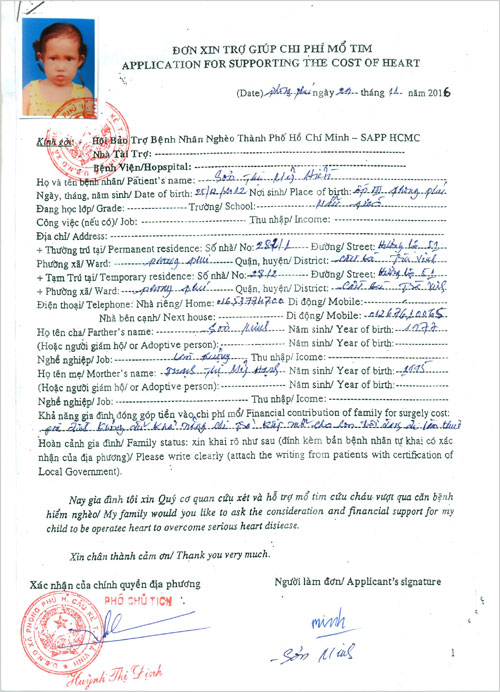 ĐƠN XIN TRỢ GIÚP CHI PHÍ MỔ TIM
APPLICATION FOR SUPPORTING THE COST OF HEART
(Date) phong phú ngày 20 tháng 11 năm 2016
Kính gởi: Hội Bảo Trợ Bệnh Nhân Nghèo Thành Phố Hồ Chí Minh – SAPP HCMC
Nhà Tài Trợ:
Bệnh Viện/Hopspital:
Họ và tên bệnh nhân/ Patient's name: Sơn Thị Mỹ Hiền
Ngày, tháng, năm sinh/ Date of birth: 25/12/2012 Nơi sinh/ Place of birth: phong phú
Đang học lớp/ Grade: Trường/ School: Mẫu giáo
Công việc (nếu có)/ Job: Thu nhập/ Income:
Địa chỉ/ Address:
+ Thường trú tại/ Permanent residence: Số nhà/ No: 282/1 Đường/ Street:
Phường xã/ Ward: phong phú Quận, huyện/ District: Cầu kè Trà Vinh
+ Tạm Trú tại/ Temporary residence: Số nhà/ No: Đường/ Street:
+ Phường xã/ Ward: phong phú Quận, huyện/ District: Cầu kè Trà Vinh
Điện thoại/ Telephone: Nhà riêng/ Home: 01653774700 Di động/ Mobile:
Nhà bên cạnh/ Next house: Di động/ Mobile: 01267610065
Họ tên cha/ Farther's name: Sơn Minh Năm sinh/ Year of birth: 1977
(Hoặc người giám hộ/ or Adoptive person): Năm sinh/ Year of birth:
Nghề nghiệp/ Job: Thu nhập/ Icome:
Họ tên mẹ/ Morther's name: Thạch Thị Mỹ Hạnh Năm sinh/ Year of birth:
(Hoặc người giám hộ/ or Adoptive person): Năm sinh/ Year of birth:
Nghề nghiệp/ Job: Thu nhập/ Income:
Khả năng gia đình đóng góp tiền vào chi phí mổ/ Financial contribution of family for surgely cost:
gia đình không có khả năng chi trả
Hoàn cảnh gia đình/ Family status: xin khai rõ như sau (đính kèm bản bệnh nhân tự khai có xác
nhận của địa phương)/ Please write clearly (attach the writing from patients with certification of
Local Government).
Nay gia đình tôi xin Quý cơ quan cứu xét và hỗ trợ mổ tim cứu cháu vượt qua căn bệnh
hiểm nghèo/ My family would you like to ask the consideration and financial support for my
child to be operatec heart to overcome serious heart disease.
Xin chân thành cảm ơn/ Thank you very much.
Xác nhận của chính quyền địa phương
Người làm đơn/ Applicant's signature
PHÓ CHỦ TỊCH
minh
Sơn Minh
Huỳnh Thị Định
1